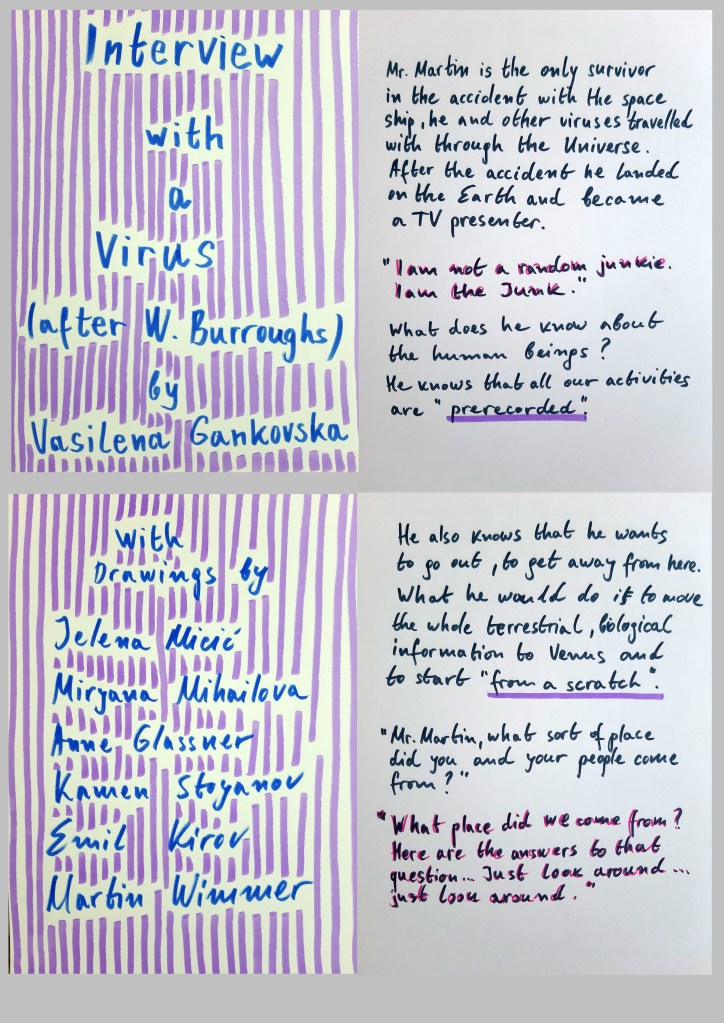 Interview
with
a
Virus
(after W. Burroughs)
by
Vasilena Gankovska
Mr. Martin is the only survivor
in the accident with the space
ship, he and other viruses travelled
with through the Universe.
After the accident he landed
on the Earth and became
a TV presenter.
"I am not a random junkie.
I am the Junk."
What does he know about
the human beings?
He knows that all our activities
are "prerecorded".
With
Drawings by
Jelena Micić
Mirjana Mihailova
Anne Glassner
Kamen Stoyanov
Emil Kirov
Martin Wimmer
He also knows that he wants
to go out, to get away from here.
What he would do is to move
the whole terrestrial, biological
information to Venus and
to start "from a scratch".
"Mr. Martin, what sort of place
did you and your people come
from?"
"What place did we come from?
Here are the answers to that
question... Just look around...
just look around."